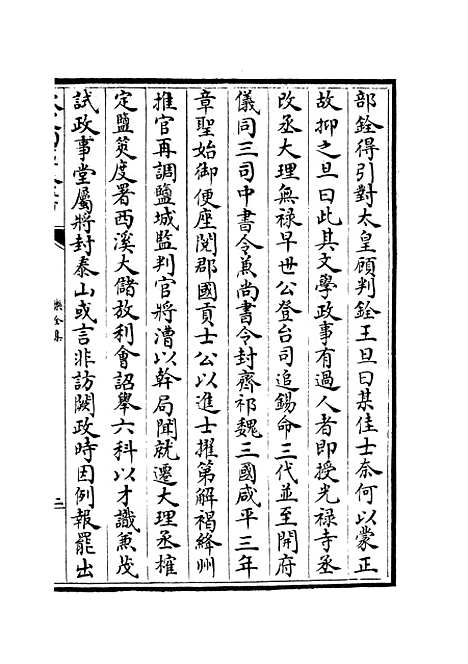 部銓得引對太皇顧判銓王旦曰某佳士奈何以蒙正
故抑之旦曰此其文學政事有過人者即授光禄寺丞
改丞大理無禄早世公登台司追錫命三代並至開府
儀同三司中書令兼尚書令封齊祁魏三國咸平三年
章聖始御便座閲郡國貢士公以進士擢第解褐絳州
推官再調鹽城監判官將漕以幹局聞就遷大理丞榷
定鹽筴度署西溪大儲放利會詔舉六科以才識兼茂
試政事堂屬將封泰山或言非訪闕政時因例報罷出
集
二